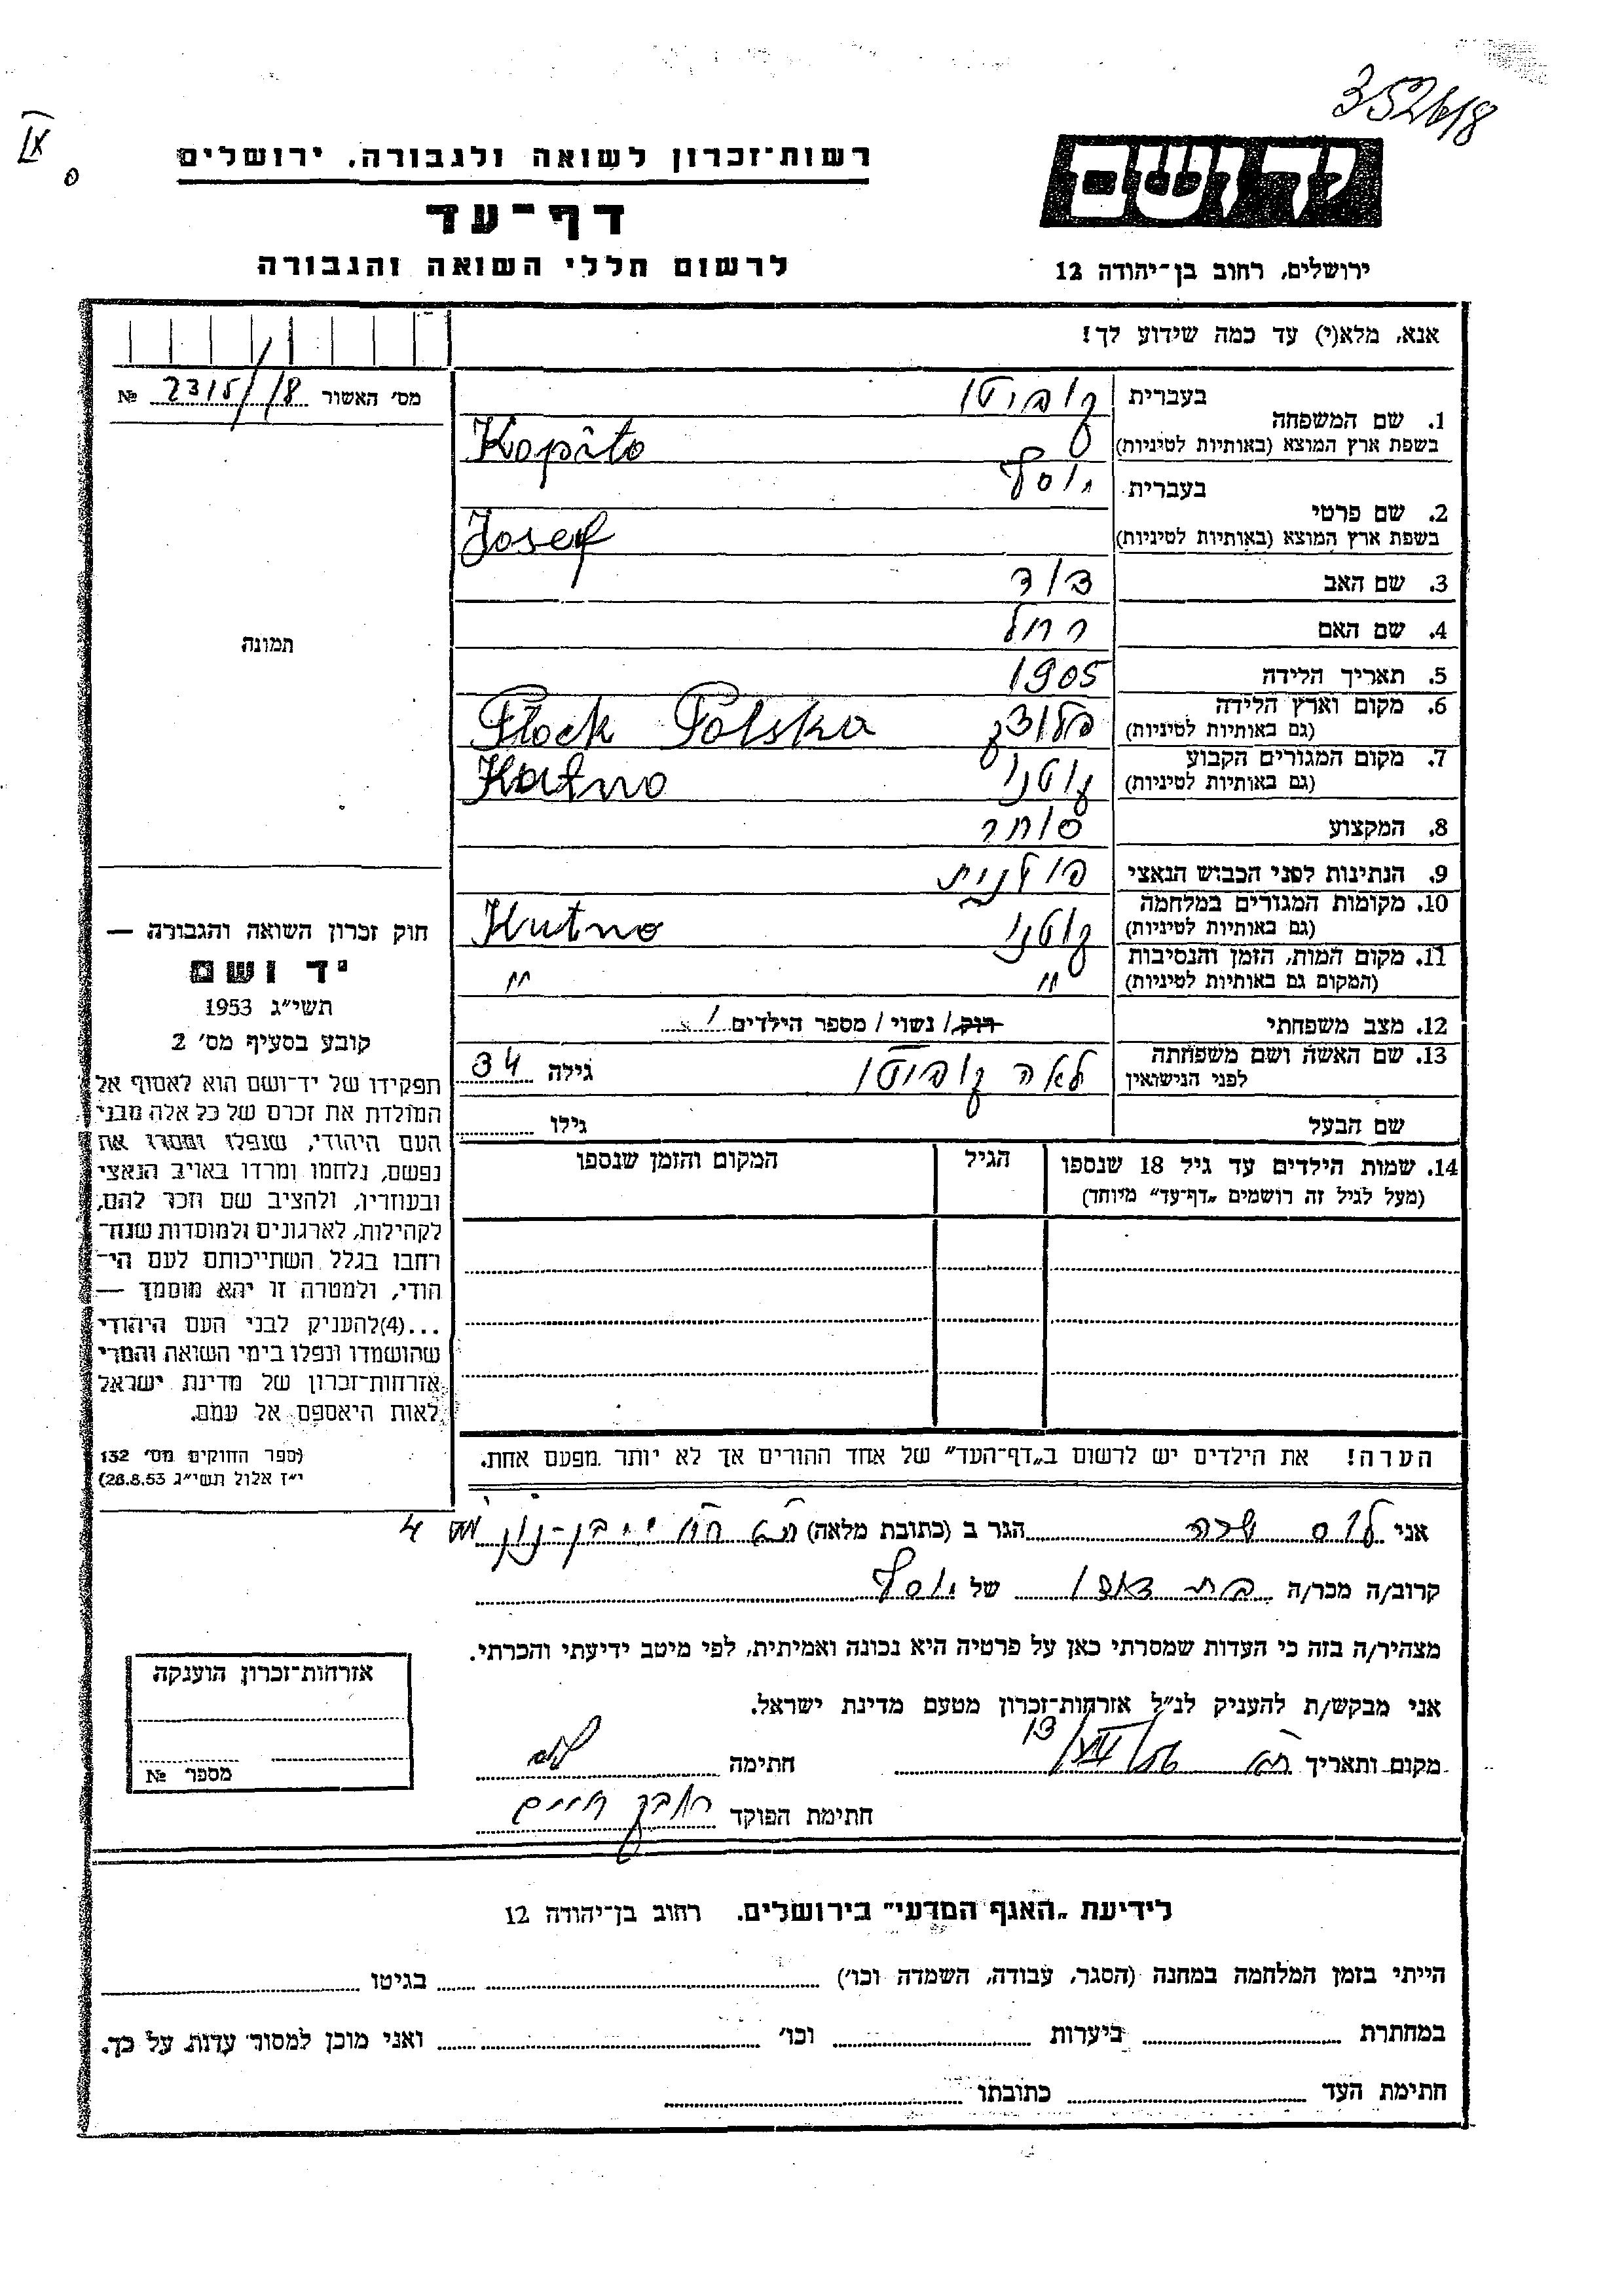 352618
רשות־זכרון לשואה ולגבורה, ירושלים
יד ושם
דף־עד
לרשום חללי השואה והגבורה
ירושלים, רחוב בן־יהודה 12
אנא, מלא(י) עד כמה שידוע לך!
מס׳ האשור 2315/18 №
1. שם המשפחה בעברית קופיטו
בשפת ארץ המוצא (באותיות לטיניות) Kopito
2. שם פרטי בעברית יוסף
בשפת ארץ המוצא (באותיות לטיניות) Josef
3. שם האב דוד
4. שם האם רחל
תמונה
5. תאריך הלידה 1905
6. מקום וארץ הלידה פלוצק Płock Polska
(גם באותיות לטיניות)
7. מקום המגורים הקבוע קוטנו Kutno
(גם באותיות לטיניות)
8. המקצוע סוחר
9. הנתינות לפני הכבוש הנאצי פולנית
10. מקומות המגורים במלחמה קוטנו Kutno
(גם באותיות לטיניות)
11. מקום המות, הזמן והנסיבות " "
(המקום גם באותיות לטיניות)
12. מצב משפחתי רוק / נשוי / מספר הילדים 1
13. שם האשה ושם משפחתה לאה קופיטו גילה 34
לפני הנישואין
שם הבעל גילו
14. שמות הילדים עד גיל 18 שנספו הגיל המקום והזמן שנספו
(מעל לגיל זה רושמים „דף־עד" מיוחד)
הערה! את הילדים יש לרשום ב„דף־העד" של אחד ההורים אך לא יותר מפעם אחת.
חוק זכרון השואה והגבורה —
יד ושם
תשי״ג 1953
קובע בסעיף מס׳ 2
תפקידו של יד־ושם הוא לאסוף אל
המולדת את זכרם של כל אלה מבני
העם היהודי, שנפלו ומסרו את
נפשם, נלחמו ומרדו באויב הנאצי
ובעוזריו, ולהציב שם וזכר להם,
לקהילות, לארגונים ולמוסדות שנח־
רבו בגלל השתייכותם לעם הי־
הודי, ולמטרה זו יהא מוסמך —
...(4)להעניק לבני העם היהודי
שהושמדו ונפלו בימי השואה והמרי
אזרחות־זכרון של מדינת ישראל
לאות היאספם אל עמם.
(ספר החוקים מס׳ 132
י״ז אלול תשי״ג 28.8.53)
אני שרה הגר ב (כתובת מלאה) בן-נון 4
קרוב/ה מכר/ה בת דודו של יוסף
מצהיר/ה בזה כי העדות שמסרתי כאן על פרטיה היא נכונה ואמיתית, לפי מיטב ידיעתי והכרתי.
אני מבקש/ת להעניק לנ״ל אזרחות־זכרון מטעם מדינת ישראל.
מקום ותאריך חתימה
חתימת הפוקד חיים
אזרחות־זכרון הוענקה
מספר №
לידיעת „האגף המדעי" בירושלים. רחוב בן־יהודה 12
הייתי בזמן המלחמה במחנה (הסגר, עבודה, השמדה וכו׳) בגיטו
במחתרת ביערות וכו׳ ואני מוכן למסור עדות על כך.
חתימת העד כתובתו